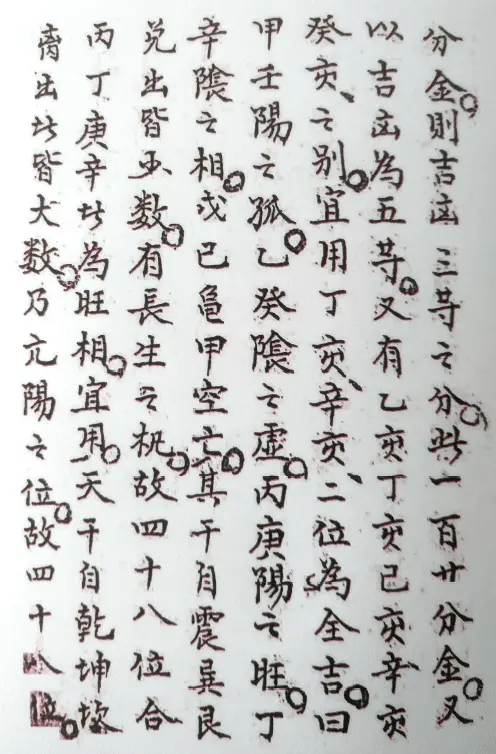 分金。則吉凶三等之分。此一百廿分金。又
以吉凶為五等。又有乙亥丁亥己亥辛亥
癸亥、之别。宜用丁亥、辛亥、二位為全吉。曰
甲壬陽之孤。乙癸陰之虛。丙庚陽之旺。丁
辛陰之相。戊己龜甲空亡。其干自震巽艮
兌出皆少数。有長生之机。故四十八位合
丙丁庚辛此為旺相。宜用。天干自乾坤坎
离出此皆大数。乃亢陽之位。故四十八位。